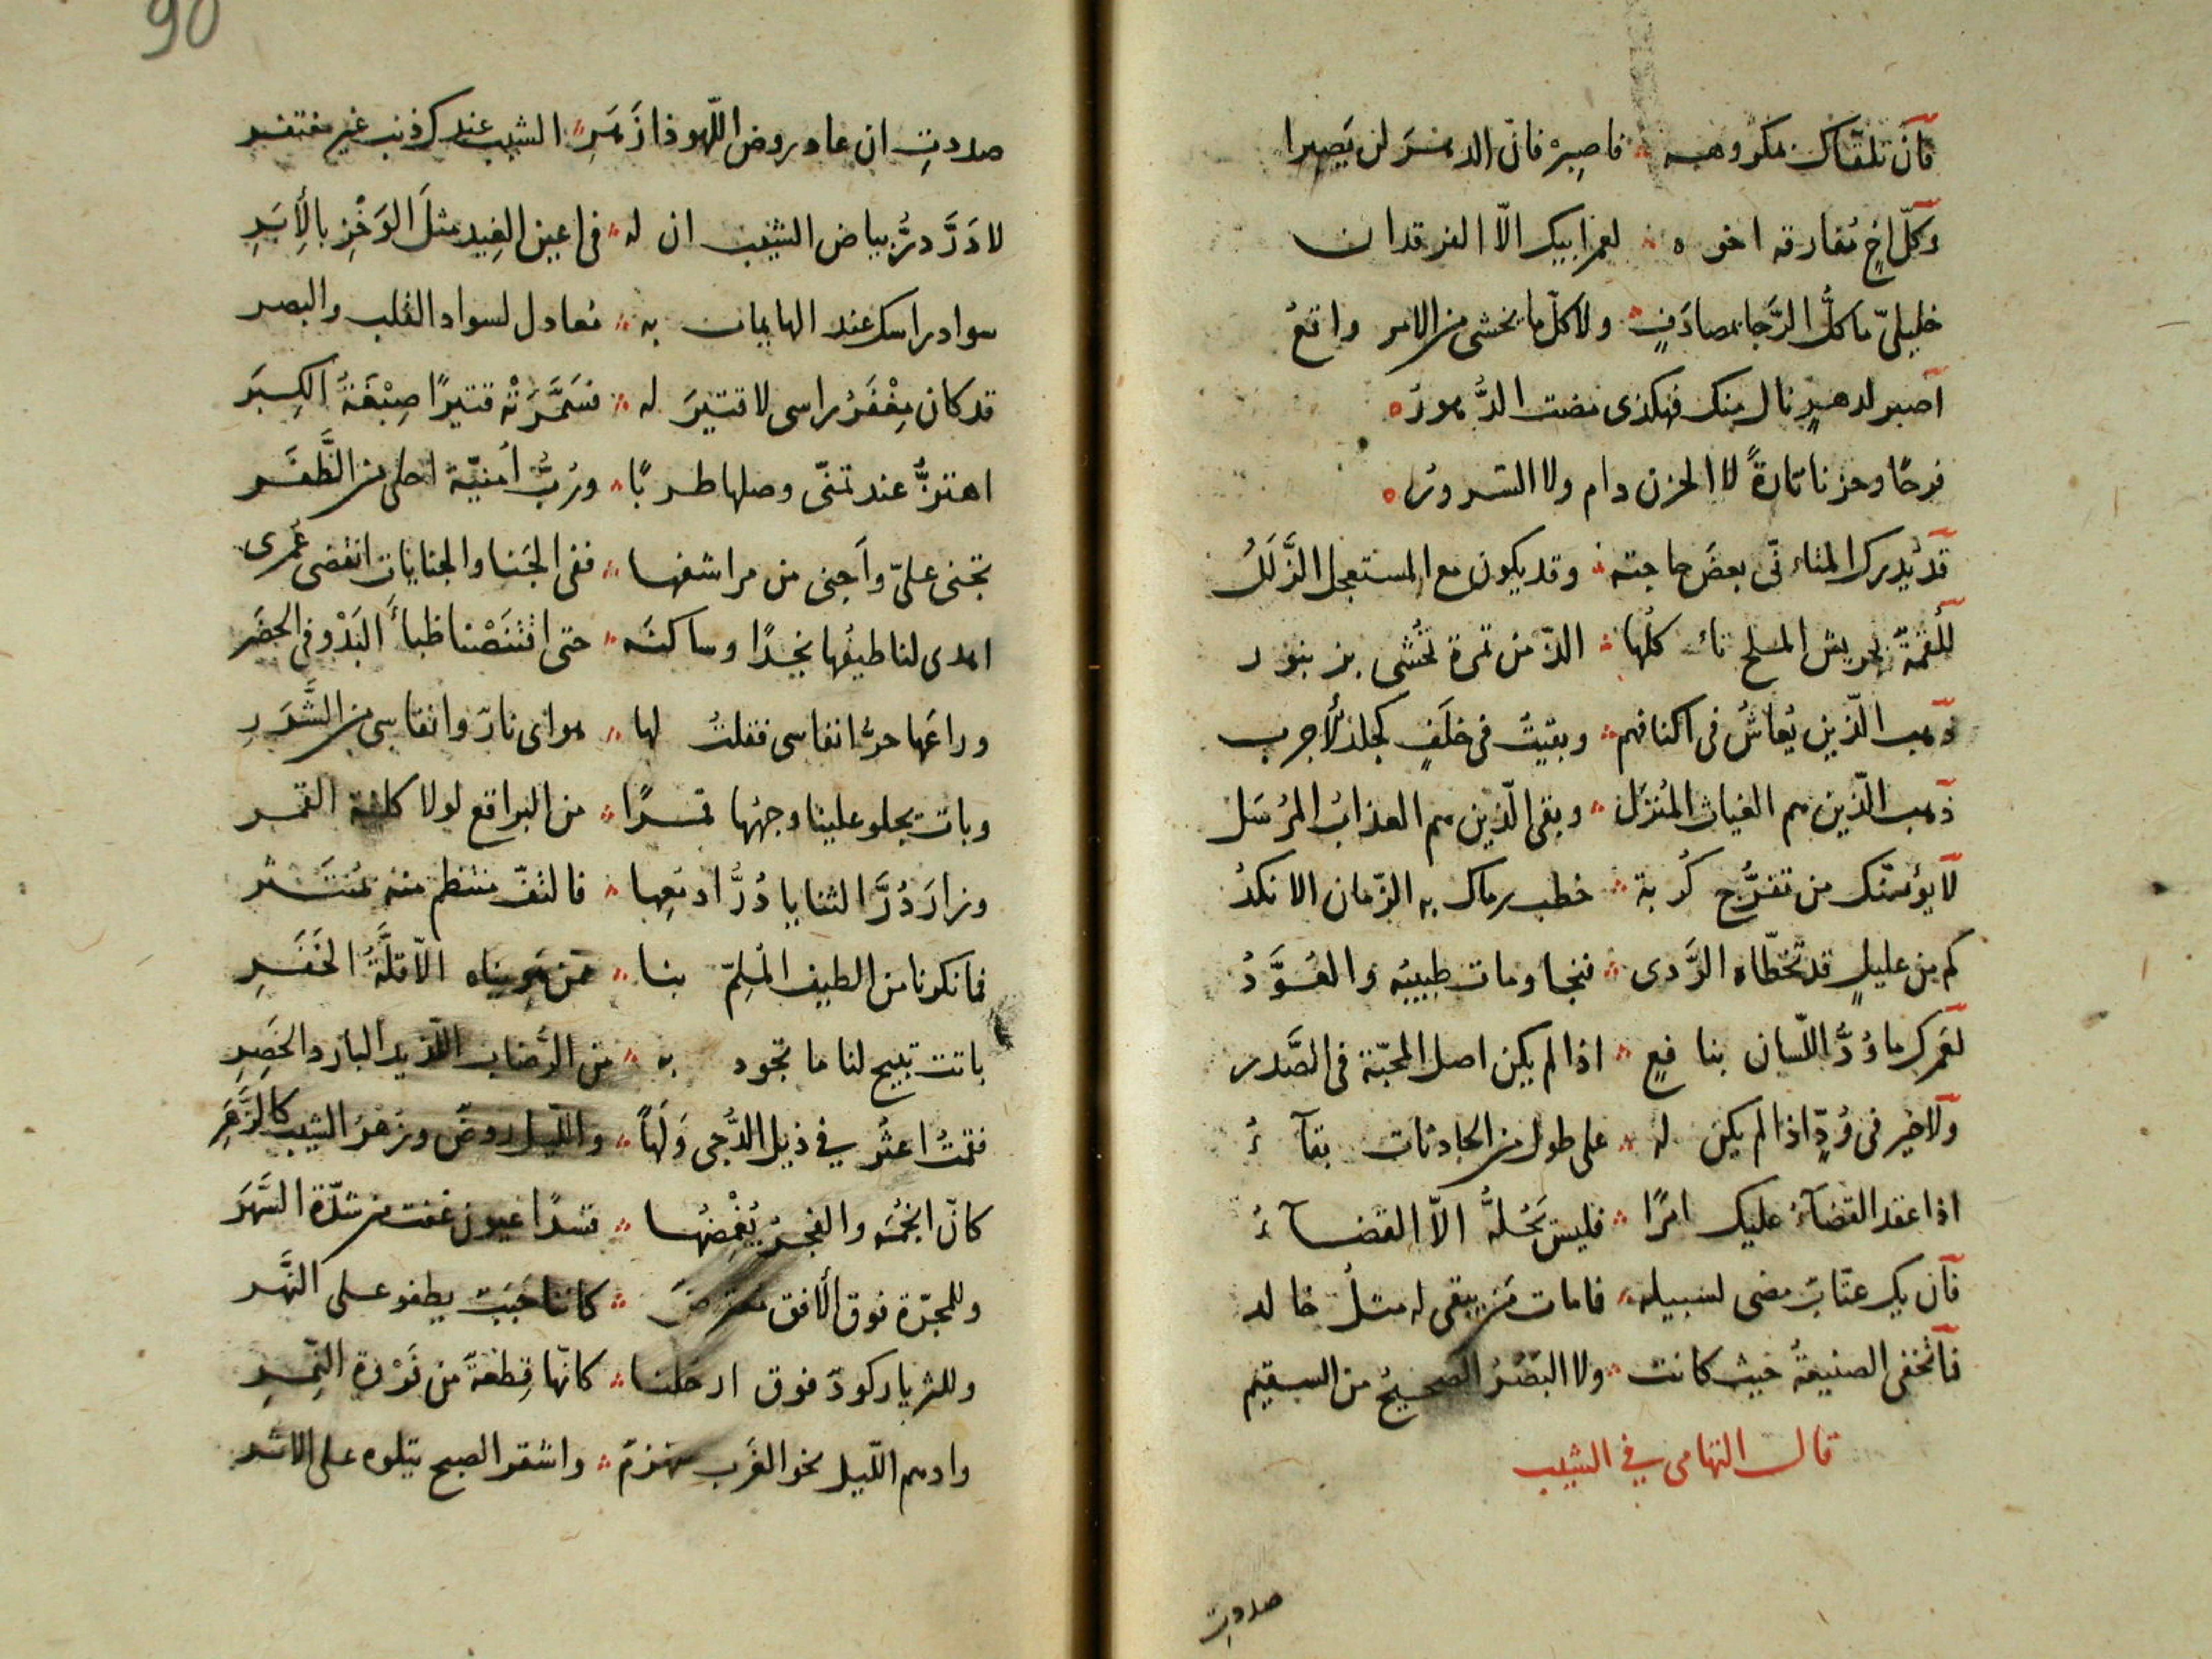 فان تلقاك مكروهه فاصبر فان الدهر لن يصبرا
وكلّ اخٍ مفارقه اخوه لعمر ابيك الّا الفرقدان
خليليّ ما كلّ الرّجا بمصادفٍ ولا كلّ ما يخشى من الامر واقعُ
اصبر لدهرٍ نال منك فهكذى مضت الدُّهورُ
فرحًا وحزنا تارةً لا الحزن دام ولا السرورُ
قد يُدرك المتأنّى بعضَ حاجته وقد يكون مع المستعجل الزَّلَلُ
للُقمةٌ بجريش الملح تأكلُها الذّ من تمرة تُحشى بزنبور
ذهب الّذين يُعاشُ فى اكنافهم وبقيتُ فى خلَفٍ كجلد الأجرب
ذهب الّذين هم الغياث المُنزَل وبقى الّذين هم العذابُ المُرسَل
لا يؤيسنّك من تفرُّج كُربة خطب رماك به الزّمان الانكدُ
كم من عليلٍ قد تخطّاه الرَّدى فنجا ومات طبيبُه والعُوَّدُ
لعَمرك ما وُدُّ اللّسان بنافعٍ اذا لم يكن اصل المحبّة فى الصَّدر
ولا خير فى وُدٍّ اذا لم يكن له على طول مر الحادثات بقآءُ
اذا عقد القضآءُ عليك امرًا فليس يَحُلُّه الّا القضآءُ
فان يك عتّابٌ مضى لسبيله فما مات من يبقى له مثلُ خالد
فما تخفى الصنيعةُ حيث كانت ولا البَصَرُ الصحيحُ من السقيم
قال التهامى في الشيب
صددتِ
90
صددتِ ان عاد روض اللّهو ذا زَهَرِ الشيب عندك ذنب غير مغتفر
لا دَرَّ درُّ بياض الشيب ان له فى اعين الغِيد مثلَ الوَخْزِ بالأِبَرِ
سواد راسك عند الهايمات به معادل لسواد القلب والبصر
قد كان مِغْفَرُ راسى لا قتيرَ له فسَمَّرَتْه قتيرًا صِبْغَةُ الكِبَر
اهتزُّ عند تمنّى وصلها طربًا ورُبَّ أمنيّة احلى من الظَّفَر
تجنى علىّ واَجنى من مراشفها ففى الجَنا والجنايات انقضى عُمرى
اهدى لنا طيفُها نجدًا وساكنَه حتى اقْتَنَصْنا ظباءَ البَدْو فى الحضَر
وراعَها حرُّ انفاسى فقلتُ لها هواى نارٌ وانفاسى من الشَّرَرِ
وبات يجلو علينا وجهُها قمرًا من البراقع لولا كلفة القمر
وزار دُرَّ الثنايا دُرُّ ادمعِها فالتفّ منتظم منه بمُنتَثر
فما نكرنا من الطيف المُلِمّ بنا ممّن هويناه الّا قلَّةُ الخَفَرِ
باتت تبيح لنا ما تجود به من الرُضاب اللّذيد البارد الخَصِرِ
فقمتُ اعثُر في ذيل الدُّجى وَلَهاً واللّيل روضٌ وزهرُ الشيب كالزَّهَرِ
كانّ انجُمَه والفجرُ يُغْمِضُها قسرًا عيون غفت من شدّة السَّهَر
وللمجرّة فوق الأفق معترضٌ كانها حَبَبٌ يطفو على النَّهَر
وللثريا ركودٌ فوق ارحلنا كانّها قِطعةٌ من فَرْوة النَّمِرِ
وادهم اللّيل نحو الغَرب منهزمٌ واشقر الصبح يتلوه على الاثر